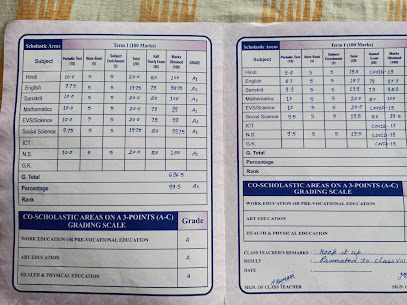 Scholastic Areas Term I (100 Marks)
Subject Periodic Test (10) Note Book (5) Subject Enrichment (5) Total (20) Half Yearly Exam (80) Marks Obtained (100) GRADE
Hindi 10.0 5 5 20.0 80 100 A1
English 9.75 5 5 19.75 79 98.75 A1
Sanskrit 10.0 5 5 20.0 80 100 A1
Mathematics 10.0 5 5 20.0 79 99 A1
EVS/Science 10.0 5 5 20.0 79 99 A1
Social Science 9.75 5 5 19.75 80 99.75 A1
ICT
N.S. 10.0 5 5 20.0 80 100 A1
G.K.
G. Total 696.5
Percentage 99.5 A1
Rank
CO-SCHOLASTIC AREAS ON A 3-POINTS (A-C) GRADING SCALE Grade
WORK EDUCATION OR PRE-VOCATIONAL EDUCATION A
ART EDUCATION A
HEALTH & PHYSICAL EDUCATION A
Scholastic Areas Term I (100 Marks)
Subject Periodic Test (10) Note Book (5) Subject Enrichment (5) Total (20) Annual Exam (80)
Hindi 5 5 COVID-19
English 5 5
Sanskrit 5 5
Mathematics 10 5 5 20.0
EVS/Science 10 5 5 20.0 COVID-19
Social Science 5 5 80
ICT COVID-19
N.S. 5 5 COVID-19
G.K.
G. Total
Percentage
Rank
CO-SCHOLASTIC AREAS ON A 3-POINTS
GRADING SCALE
WORK EDUCATION OR PRE-VOCATIONAL EDUCATION
ART EDUCATION
HEALTH & PHYSICAL EDUCATION
CLASS TEACHER'S REMARKS : Keep it up
RESULT : Promoted to class VIII
DATE :
SIGN. OF CLASS TEACHER SIGN